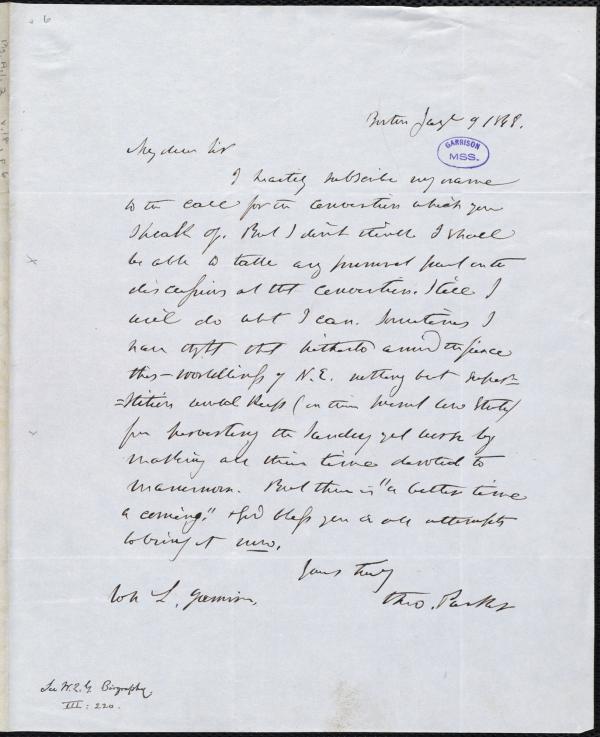 Boston Jany 9 1848.
GARRISON
MSS.
My dear Sir
I heartily subscribe my name
to the call for the convention which you
speak of. But I don't think I shall
be able to take any personal part in the
discussions at the convention. Still I
will do what I can. Sometimes I
have tht that hitherto amid the fierce
this-worldliness of N.E. nothing but super=
=stition would keep (in their present low state)
from perverting the Sunday yet worse by
making all their time devoted to
Mammon. But there is "a better time
a coming," & God bless you in all attempts
to bring it now.
Yours truly
Theo. Parker
Wm L. Garrison,
See W.L.G. Biography,
III: 220.
6